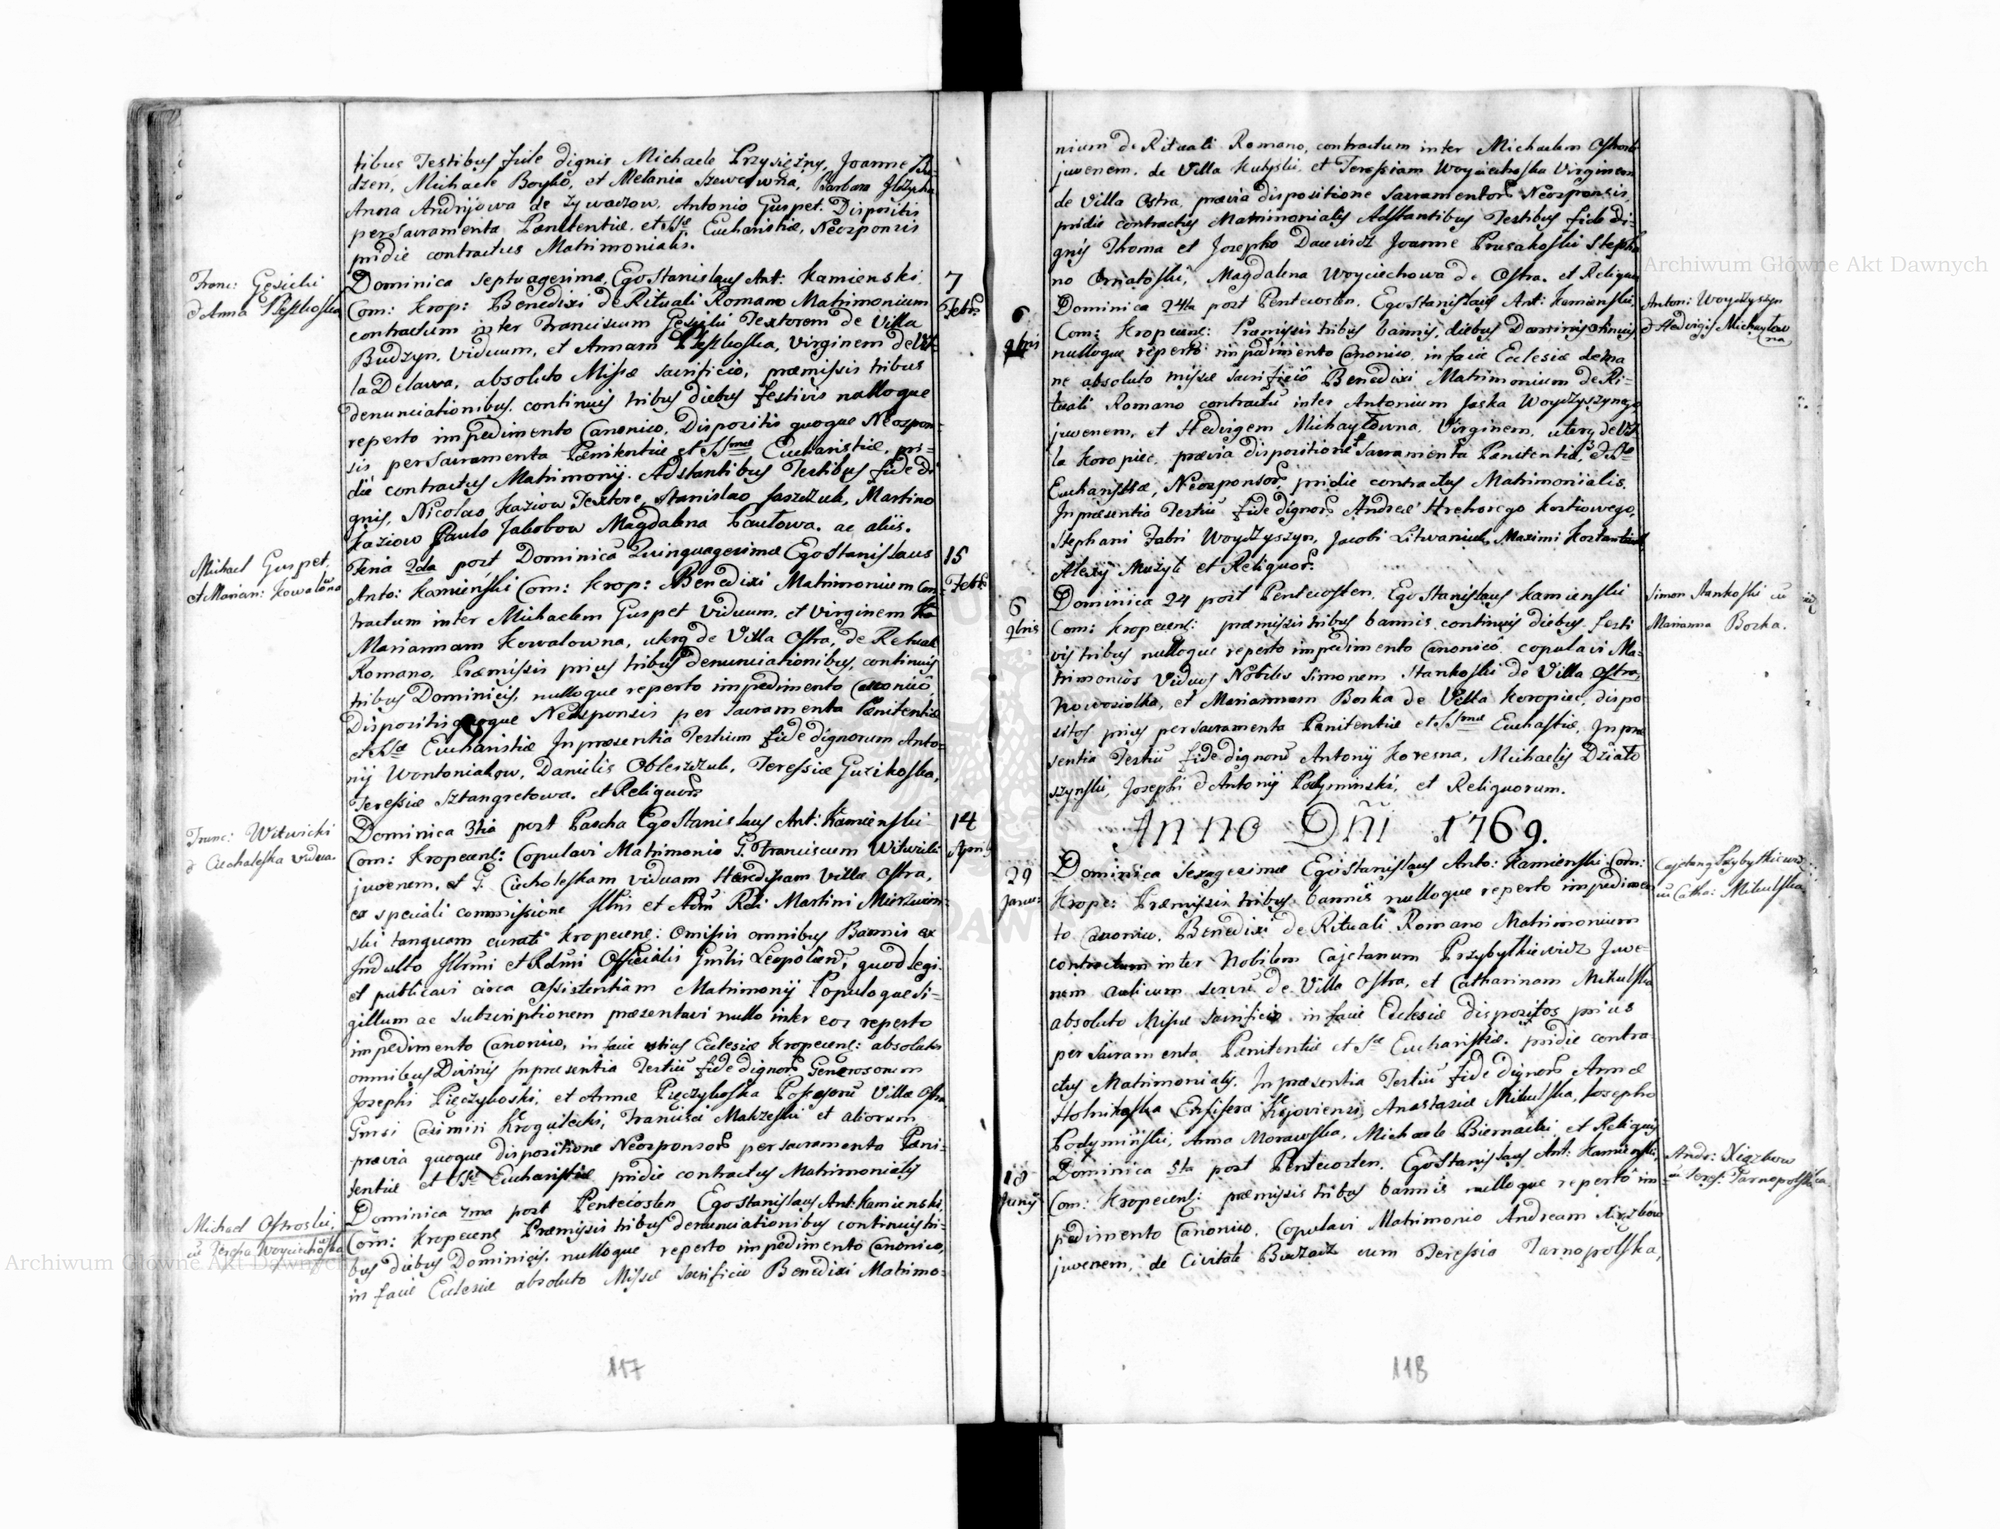 tibus Testibus fide dignis Michaele Przysiężny, Joanne
dzen, Michaele Boyko, et Melania Szewcowna, Barbara
Anna Andryiowa de Zywaczow, Antonio Guspet. Dispositis
per Sacramenta Pænitentiæ, et SSæ Eucharistiæ, Neosponsis
pridie contractus Matrimonialis.
Franc: Gęsicki
et Anna Pleszkoska
7
Febris
Dominica Septuagesima, Ego Stanislaus Ant: Kamienski
Com: Krop: Benedixi de Rituali Romano Matrimonium
contractum inter Franciscum Gęsicki Textorem de Villa
Budzyn, viduum, et Annam Pleszkoska, Virginem de Vil-
la Delawa, absoluto Missæ Sacrificio, præmissis tribus
denunciationibus continuis tribus diebus festivis nulloque
reperto impedimento Canonico, Dispositis quoque Neospon-
sis per Sacramenta Pænitentiæ et SSmæ Eucharistiæ, pri-
die contractus Matrimonij. Adstantibus Testibus fide di
gnis, Nicolao Kaziow Textore, Stanislao Jaszczuk, Martino
Kaziow Paulo Jakobow Magdalena Pawłowa. ac aliis.
Michael Guspet.
et Marian: Kowalowna
15
Febris
Feria 2da post Dominica Quinquagesimæ Ego Stanislaus
Anto: Kamieński Com: Krop: Benedixi Matrimonium con
tractum inter Michaelem Guspet viduum, et virginem
Mariannam Kowalowna, uterq de Villa Ostra, de Rituali
Romano, Præmissis prius tribus denunciationibus, continuis
tribus Dominicis, nulloque reperto impedimento Canonico,
Dispositis quoque Neosponsis per Sacramenta Pænitentiæ
et SSæ Eucharistiæ In præsentia Testium fide dignorum Anto-
nij Wontoniakow, Danielis Obleszczuk, Teressiæ Guzikoska,
Teressiæ Sztangretowa. et Reliquorũ
Franc: Witwicki
et Cicholeska vidua.
14
Aprilis
Dominica 3tia post Pascha Ego Stanislaus Ant: Kamienski
Com: Kropecens: Copulavi Matrimonio G. Franciscum Witwicki
juvenem, et G. Cicholeskam viduam Hæredissam Villæ Ostra,
ex speciali commissione Illris et Adm Rdi Martini Mierzwin-
ski tanquam curati Kropecens: Omissis omnibus Bannis ex
Indulto Illrmi et Rdmi Officialis Gnrlis Leopolien: quod legi
et publicavi circa assistentiam Matrimonij Populoque si-
gillum ac subscriptionem præsentavi nullo inter eos reperto
impedimento Canonico, in facie istius Ecclesiæ Kropecens: absolutis
omnibus Divinis In præsentia Testiũ fide dignorũ Generosorum
Josephi Pięczykoski, et Annæ Pięczykoska Possessorũ Villæ Ostra
Gnrsi Casimiri Krogulecki, Francisci Makzeski et aliorum
prævia quoque dispositione Neosponsorũ per Sacramenta Pæni-
tentiæ et SSæ Eucharistiæ pridie contractus Matrimonialis
Michael Ostroski,
cũ Teressa Woyciechoska
Dominica 7ma post Pentecosten Ego Stanislaus Ant: Kamienski
Com: Kropecens Præmissis tribus denunciationibus continuis tri-
bus diebus Dominicis, nulloque reperto impedimento Canonico,
in facie Ecclesiæ absoluto Missæ Sacrificio Benedixi Matrimo-
117
nium de Rituali Romano, contractum inter Michaelem
juvenem, de Villa Hutyski, et Teressiam Woyciechoska Virginem
de Villa Ostra, prævia dispositione Sacramentorũ Neosponsis,
pridie contractus Matrimonialis Adstantibus Testibus fide di-
gnis Thoma et Josepho Dancwicz Joanne Prusakoski Stepha
no Ornatoski, Magdalena Woyciechowa de Ostra. et Reliquis
6
9bris
Anton: Woyczyszyn
et Hedvigis Michayłow
na
Dominica 24ta post Pentecosten, Ego Stanislaus Ant: Kamienski
Com: Kropecens: Præmissis tribus bannis, diebus Dominis continuis
nulloque reperto impedimento Canonico, in facie Ecclesiæ de ma
ne absoluto missæ Sacrificio Benedixi Matrimonium de Ri-
tuali Romano contractũ inter Antonium Jaska Woyczyszynego
juvenem, et Hedvigem Michayłowna, Virginem, uterq de Vil
la Koropiec, prævia dispositione Sacramenta Pænitentiæ, et SSæ
Eucharistiæ, Neosponsorũ pridie contractus Matrimonialis.
In præsentia Testiũ fide dignorũ Andreæ Hrehorego Kostiowego,
Stephani Fabri Woyczyszyn, Jacobi Litwaniuk, Maximi
Alexij Muzyti et Reliquorũ
6
9bris
Simon Stankoski cũ
Marianna Borka.
Dominica 24 post Pentecosten, Ego Stanislaus Kamienski
Com: Kropecens: præmissis tribus bannis continuis diebus festi
vis tribus nulloque reperto impedimento Canonico, copulavi Ma-
trimonio Viduos Nobiles Simonem Stankoski de Villa Ostra,
Nowosiolka, et Mariannam Borka de Villa Koropiec, dispo
sitos prius per Sacramenta Pænitentiæ et SSmæ Euchastiæ, In præ
sentia Testiũ fide dignorũ Antonij Koresna, Michaelis Działo
szynski, Josephi et Antonij Podyminski, et Reliquorum.
Anno Dñi 1769.
29
Januar
Cajetang Przybytkiewicz
cũ Catha: Mikulska
Dominica Sexagesimæ Ego Stanislaus Anto: Kamienski Com:
Krope: Præmissis tribus bannis nulloque reperto impedimen
to Canonico, Benedixi de Rituali Romano Matrimonium
contractum inter Nobilem Cajetanum Przybytkiewicz Juve
nem aulicum servũ de Villa Ostra, et Catharinam Mikulska
absoluto Missæ Sacrificio in facie Ecclesiæ dispositos prius
per Sacramenta Pænitentiæ et SSæ Eucharistiæ, pridie contra-
ctus Matrimonialis, In præsentia Testiũ fide dignorũ Annæ
Holnikoska Ensifera Kijoviensi, Anastasiæ Mikulska, Josepho
Podyminski, Anna Morawska, Michaele Biernacki et Reliquis
18
Junij
Andr: Xiązkow
cũ Teres: Tarnopolska
Dominica 5ta post Pentecosten. Ego Stanislaus Ant: Kamienski,
Com: Kropecens: præmissis tribus bannis nulloque reperto im-
pedimento Canonico, Copulavi Matrimonio Andream Xiązkow
juvenem, de Civitate Buczacz cum Teressia Tarnopolska,
118
Archiwum Główne Akt Dawnych
Archiwum Główne Akt Dawnych